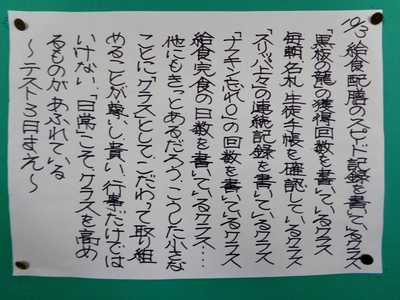 10/3 給食配膳のスピード記録を書いているクラス
「黒板の龍」の獲得回数を書いているクラス
毎朝、名札、生徒手帳を確認しているクラス
「スリッパ」の連続記録を書いているクラス
「ナフキン忘れ0」の回数を書いているクラス
給食完食の日数を書いているクラス…
他にもきっとあるだろう。こうした小さな
ことに「クラス」として、こだわって取り組
めることが尊いし、貴い。行事だけでは
いけない、「日常」こそ、クラスを高め
るものがあふれている
〜テスト3日まえ〜